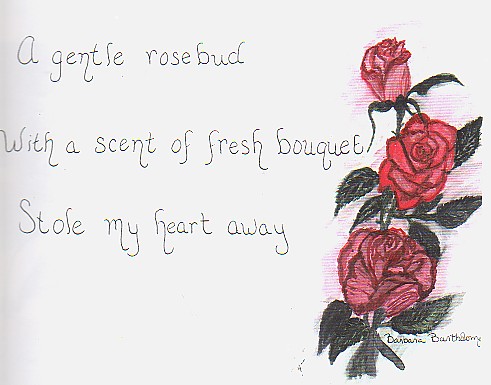 A gentle rosebud
With a scent of fresh bouquet
Stole my heart away
Barbara